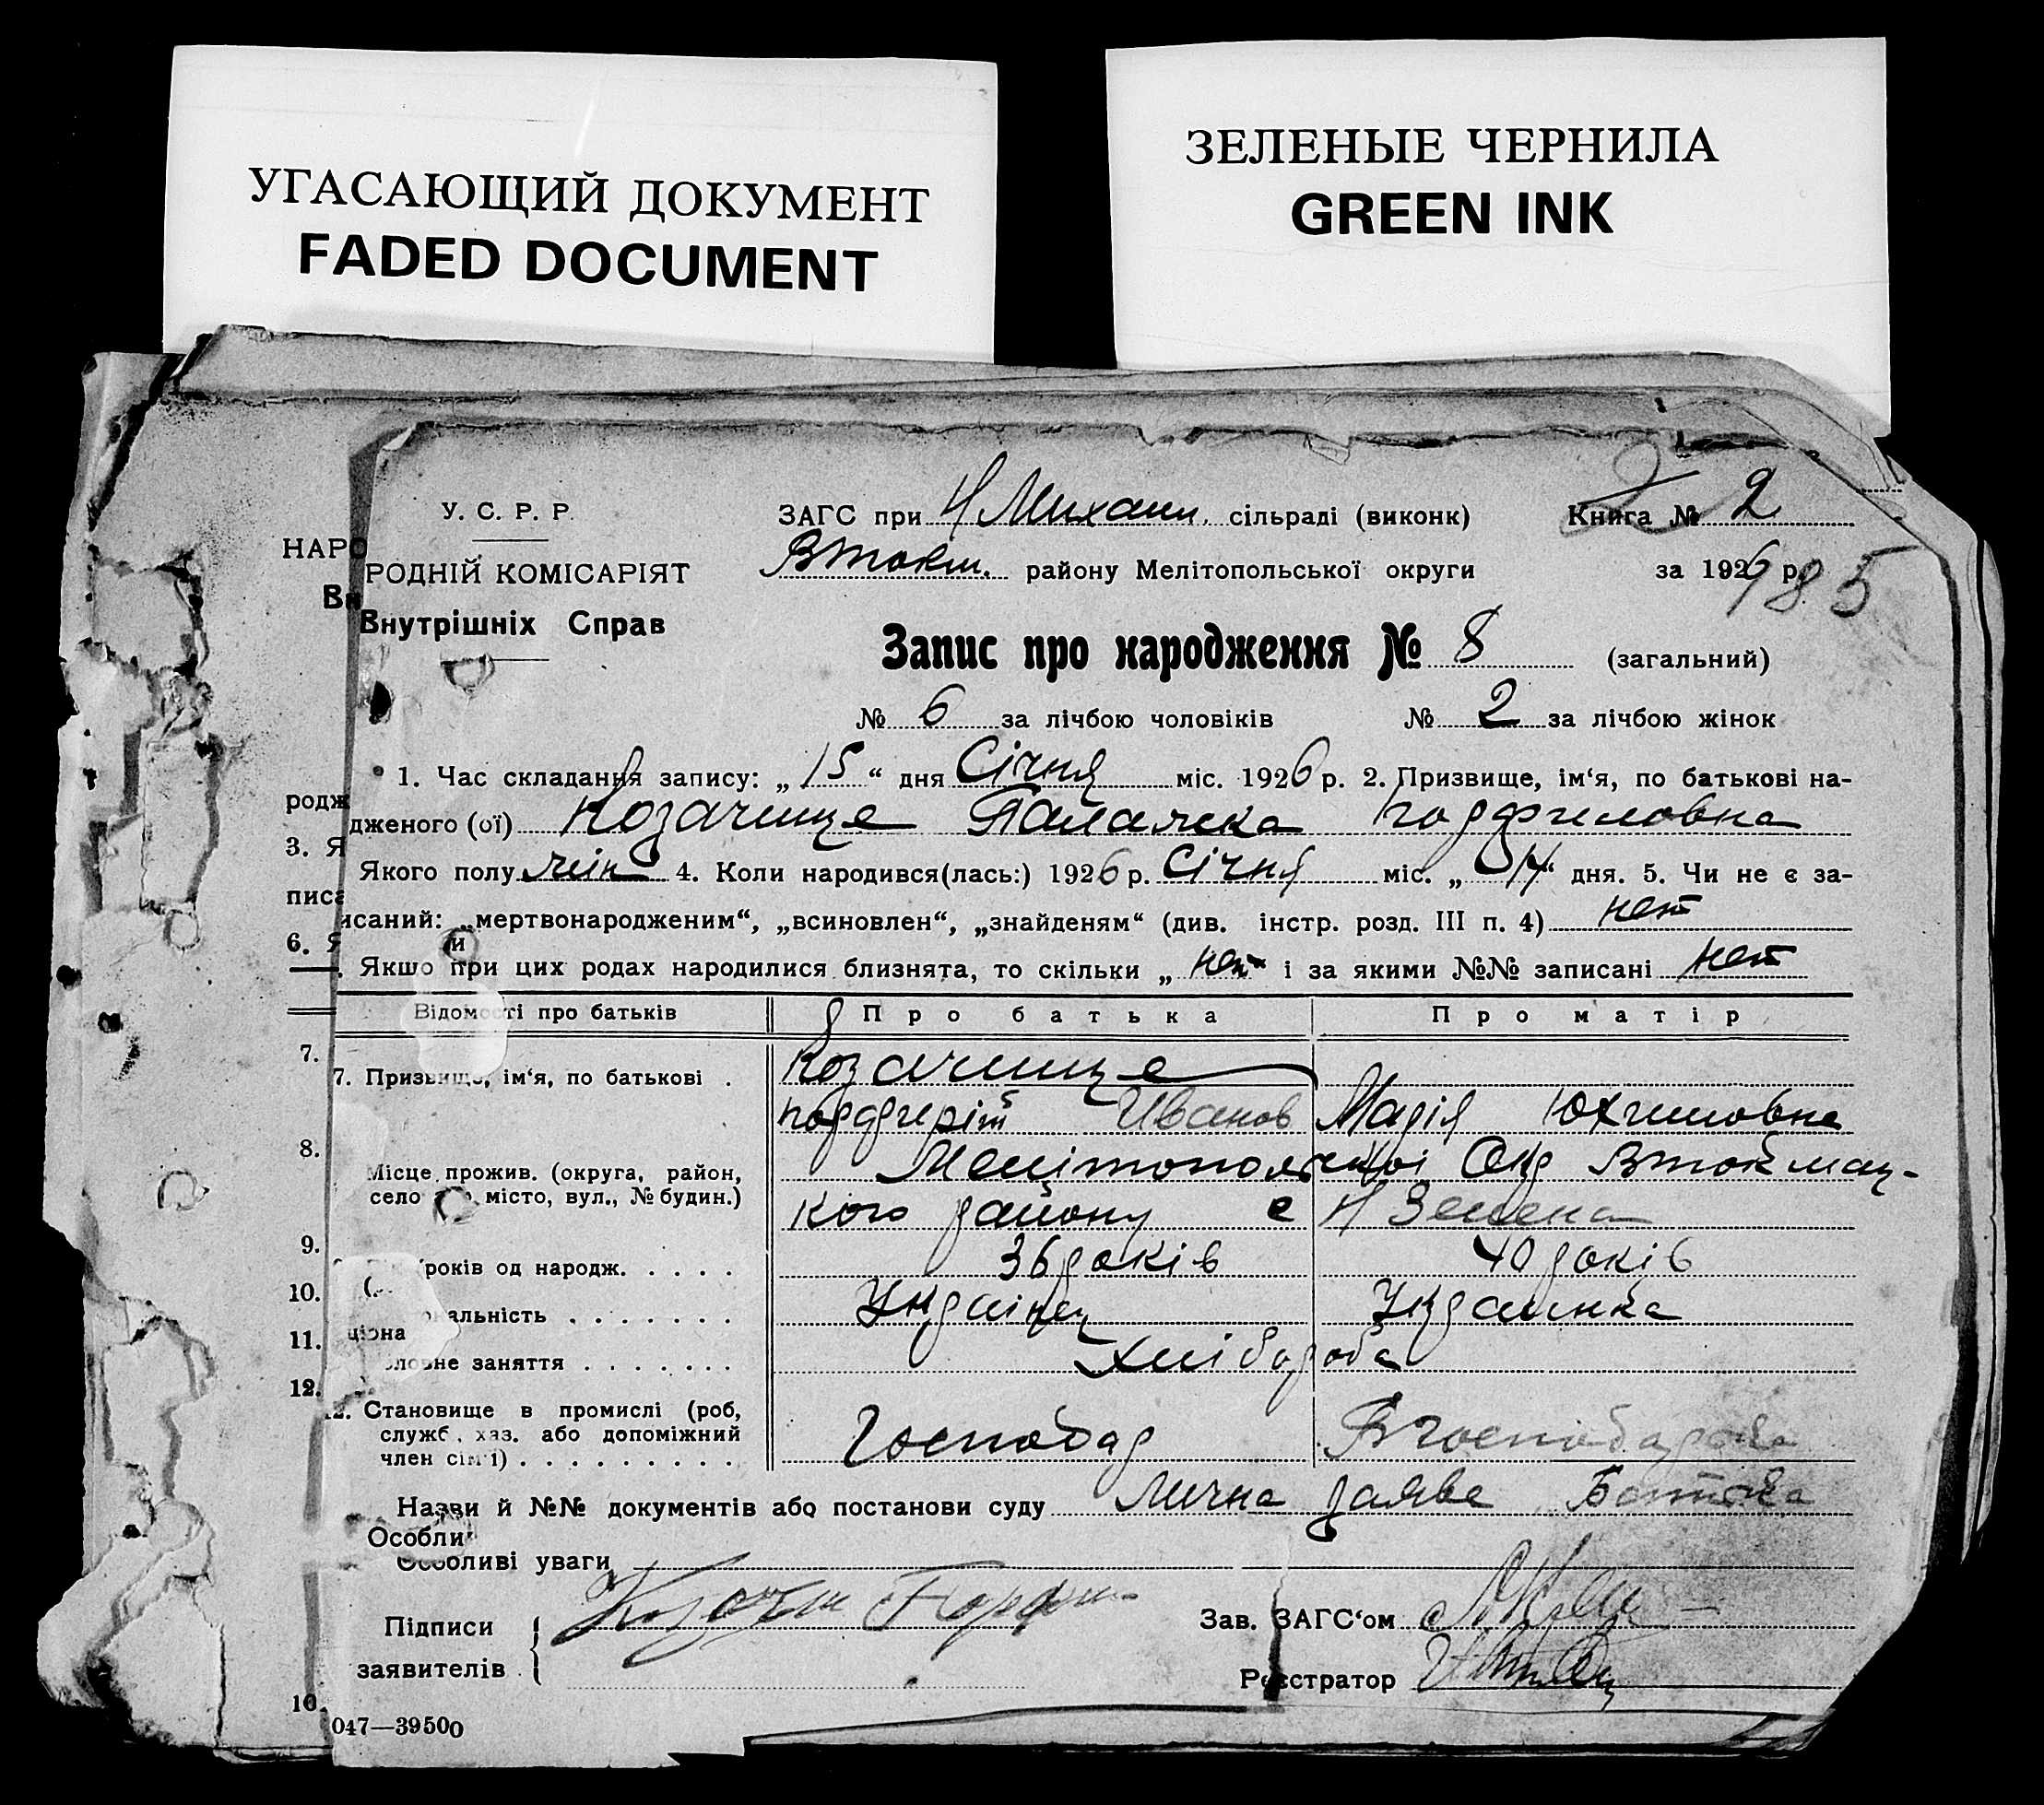 УГАСАЮЩИЙ ДОКУМЕНТ
FADED DOCUMENT
ЗЕЛЕНЫЕ ЧЕРНИЛА
GREEN INK
У. С. Р. Р.
НАРО
РОДНІЙ КОМІСАРІЯТ
Вн
Внутрішніх Справ
ЗАГС при Н Михайл. сільраді (виконк)
Книга № 2
Втокм. району Мелітопольської округи
за 1926 р.
85
Запис про народження № 8 (загальний)
№ 6 за лічбою чоловіків № 2 за лічбою жінок
1. Час складання запису: „15“ дня Січня міс. 1926 р. 2. Призвище, ім‘я, по батькові на-
родж
дженого (ої) Козачище Палажка Порфиловна
3. Я
Якого полу жін 4. Коли народився(лась:) 1926 р. Січня міс. „14“ дня. 5. Чи не є за-
писа
исаний: „мертвонародженим“, „всиновлен“, „знайденям“ (див. інстр. розд. III п. 4) нет
6. Я
и
Якшо при цих родах народилися близнята, то скільки „нет“ і за якими №№ записані нет
Відомості про батьків Про батька Про матір
7.
7. Призвище, ім‘я, по батькові .
Козачище
Порфиріт Иванов Марія Юхимовна
8.
Місце прожив. (округа, район, село місто, вул., № будин.)
Мелітопольскої Окр Втокмац-
кого району с Н Зелена
9.
років од народж. . . . . 36 років 40 років
10.
ональність . . . . . . . Українец Украинка
11.
ціона
ловне заняття . . . . . . . Хлібороба
12.
12. Становище в промислі (роб,
служб, хаз. або допоміжний
член сім‘ї) . . . . . . . . . Господар В господарства
Назви й №№ документів або постанови суду Лична заява Батька
Особли
Особливі уваги
Підписи
заявителів
Козачи Порфи
Зав. ЗАГС‘ом
Реєстратор
10.
047—39500